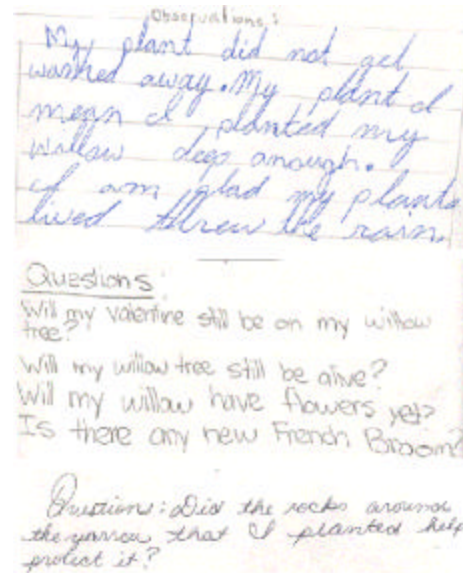 Observations:
My plant did not get
washed away. My plant I
mean I planted my
willow deep anough.
I am glad my plants
lived threw the rain.
Questions
Will my valentine still be on my willow
tree?
Will my willow tree still be alive?
Will my willow have flowers yet?
Is there any new French Broom?
Questions: Did the rocks around
the yarrow that I planted help
protect it?